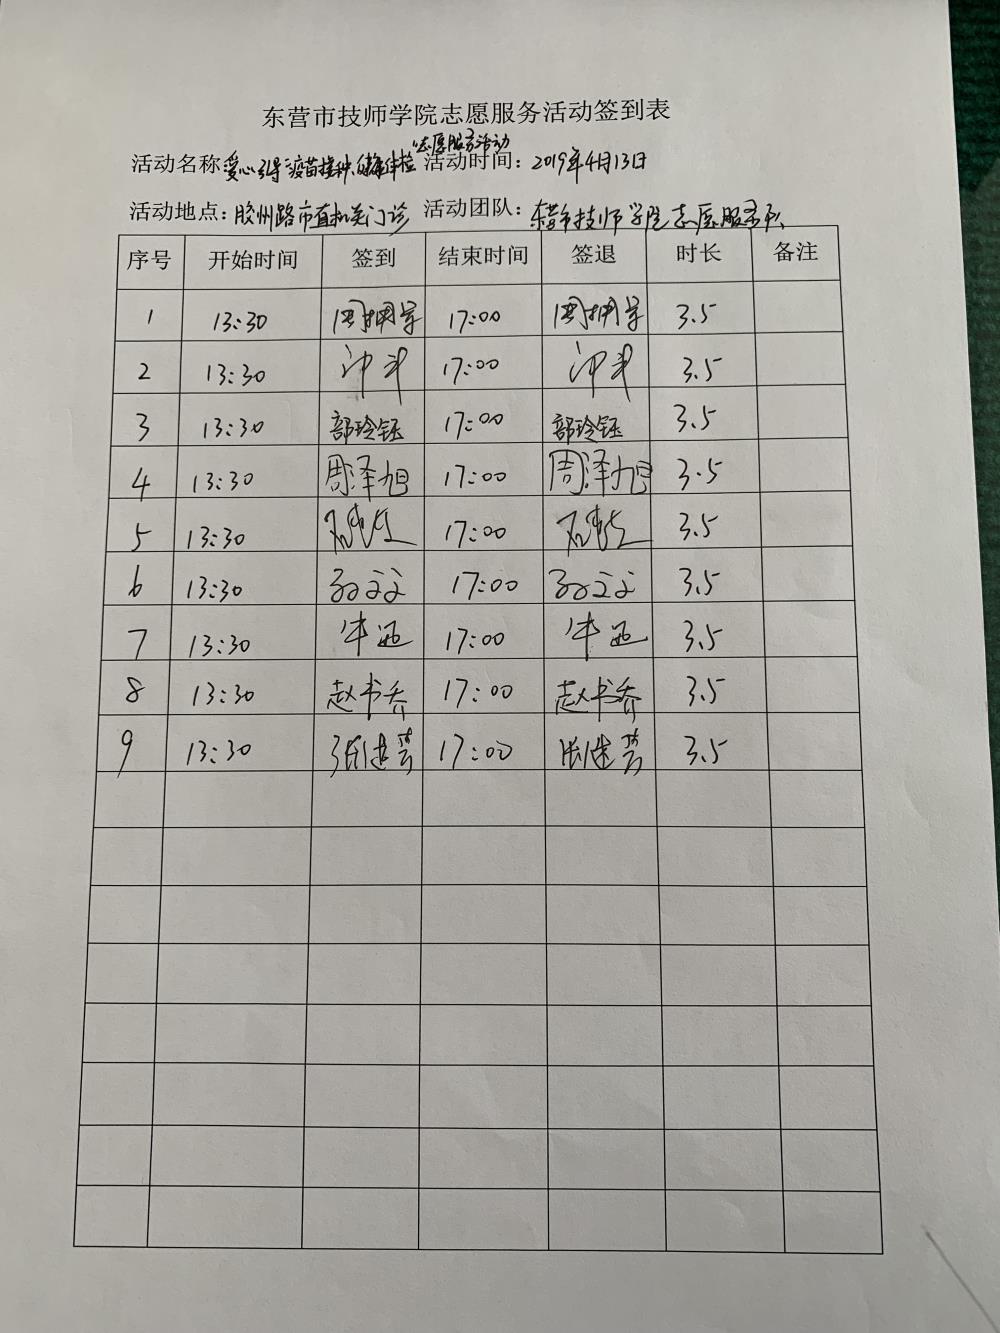 东营市技师学院志愿服务活动签到表
志愿服务活动
活动名称 爱心引导 疫苗接种、健康体检 活动时间: 2019年4月13日
活动地点: 胶州路市直机关门诊 活动团队: 东营市技师学院志愿服务队
序号 开始时间 签到 结束时间 签退 时长 备注
1 13:30 17:00 3.5
2 13:30 17:00 3.5
3 13:30 部玲钰 17:00 部玲钰 3.5
4 13:30 周泽旭 17:00 周泽旭 3.5
5 13:30 17:00 3.5
6 13:30 孙文文 17:00 孙文文 3.5
7 13:30 牛迅 17:00 牛迅 3.5
8 13:30 赵书乔 17:00 赵书乔 3.5
9 13:30 17:00 3.5